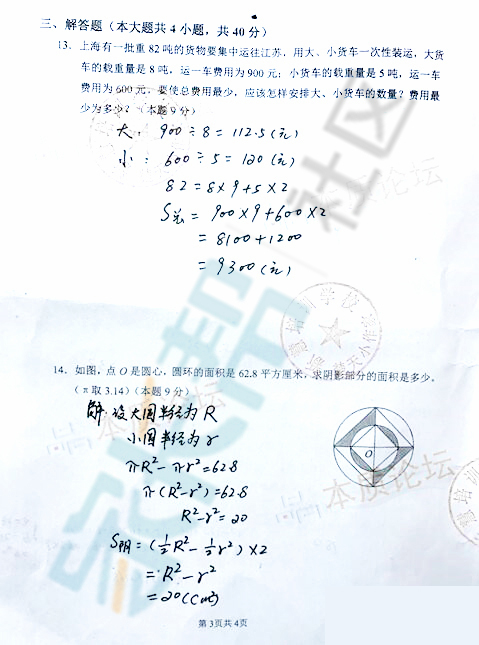 三、解答题（本大题共 4 小题，共 40 分）
13. 上海有一批重 82 吨的货物要集中运往江苏，用大、小货车一次性装运，大货
车的载重量是 8 吨，运一车费用为 900 元；小货车的载重量是 5 吨，运一车
费用为 600 元，要使总费用最少，应该怎样安排大、小货车的数量？费用最
少为多少？（本题 9 分）
大：900÷8=112.5(元)
小：600÷5=120(元)
82=8×9+5×2
S总=900×9+600×2
=8100+1200
=9300(元)
14. 如图，点 O 是圆心，圆环的面积是 62.8 平方厘米，求阴影部分的面积是多少。
（π取 3.14）（本题 9 分）
解：设大圆半径为R
小圆半径为r
πR²-πr²=62.8
π(R²-r²)=62.8
R²-r²=20
S阴=(½R²-½r²)×2
=R²-r²
=20(cm²)
O
第 3 页 共 4 页
作业帮
社区
本质论坛
本质论坛